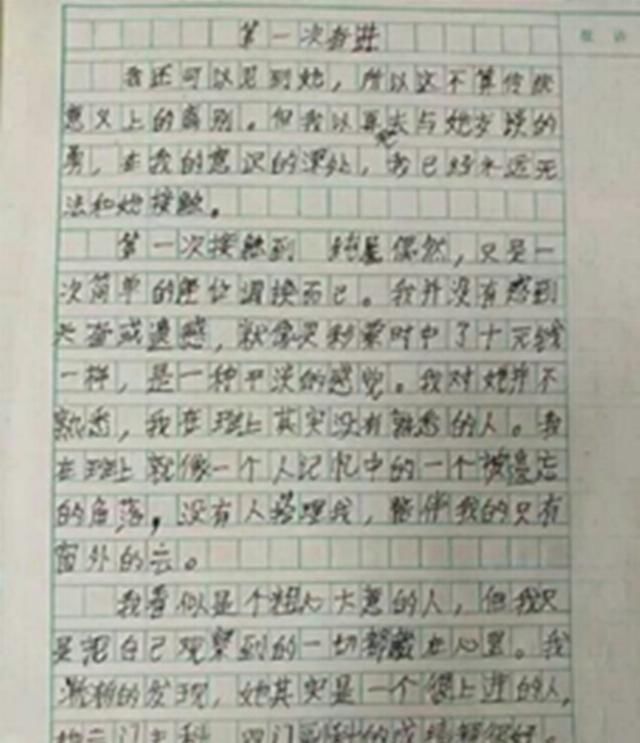 第一次奋进
我还可以见到她，所以这不算传统
意义上的离别。但我以再去与她岁的
勇，在我的意识的深处，我已经永远无
法和她接触。
第一次接触到 纯属偶然，只是一
次简单的座位调换而已。我并没有感到
兴奋或遗憾，就像买彩票时中了十元钱
一样，是一种平淡的感觉。我对她并不
熟悉，我在班上其实没有熟悉的人。我
在班上就像一个人记忆中的一个被遗忘
的角落，没有人理我，陪伴我的只有
窗外的云。
我看似是个粗心大意的人，但我只
是把自己观察到的一切都藏在心里。我
渐渐的发现，她其实是一个很上进的人，
她三门主科，四门副科的成绩都很好。